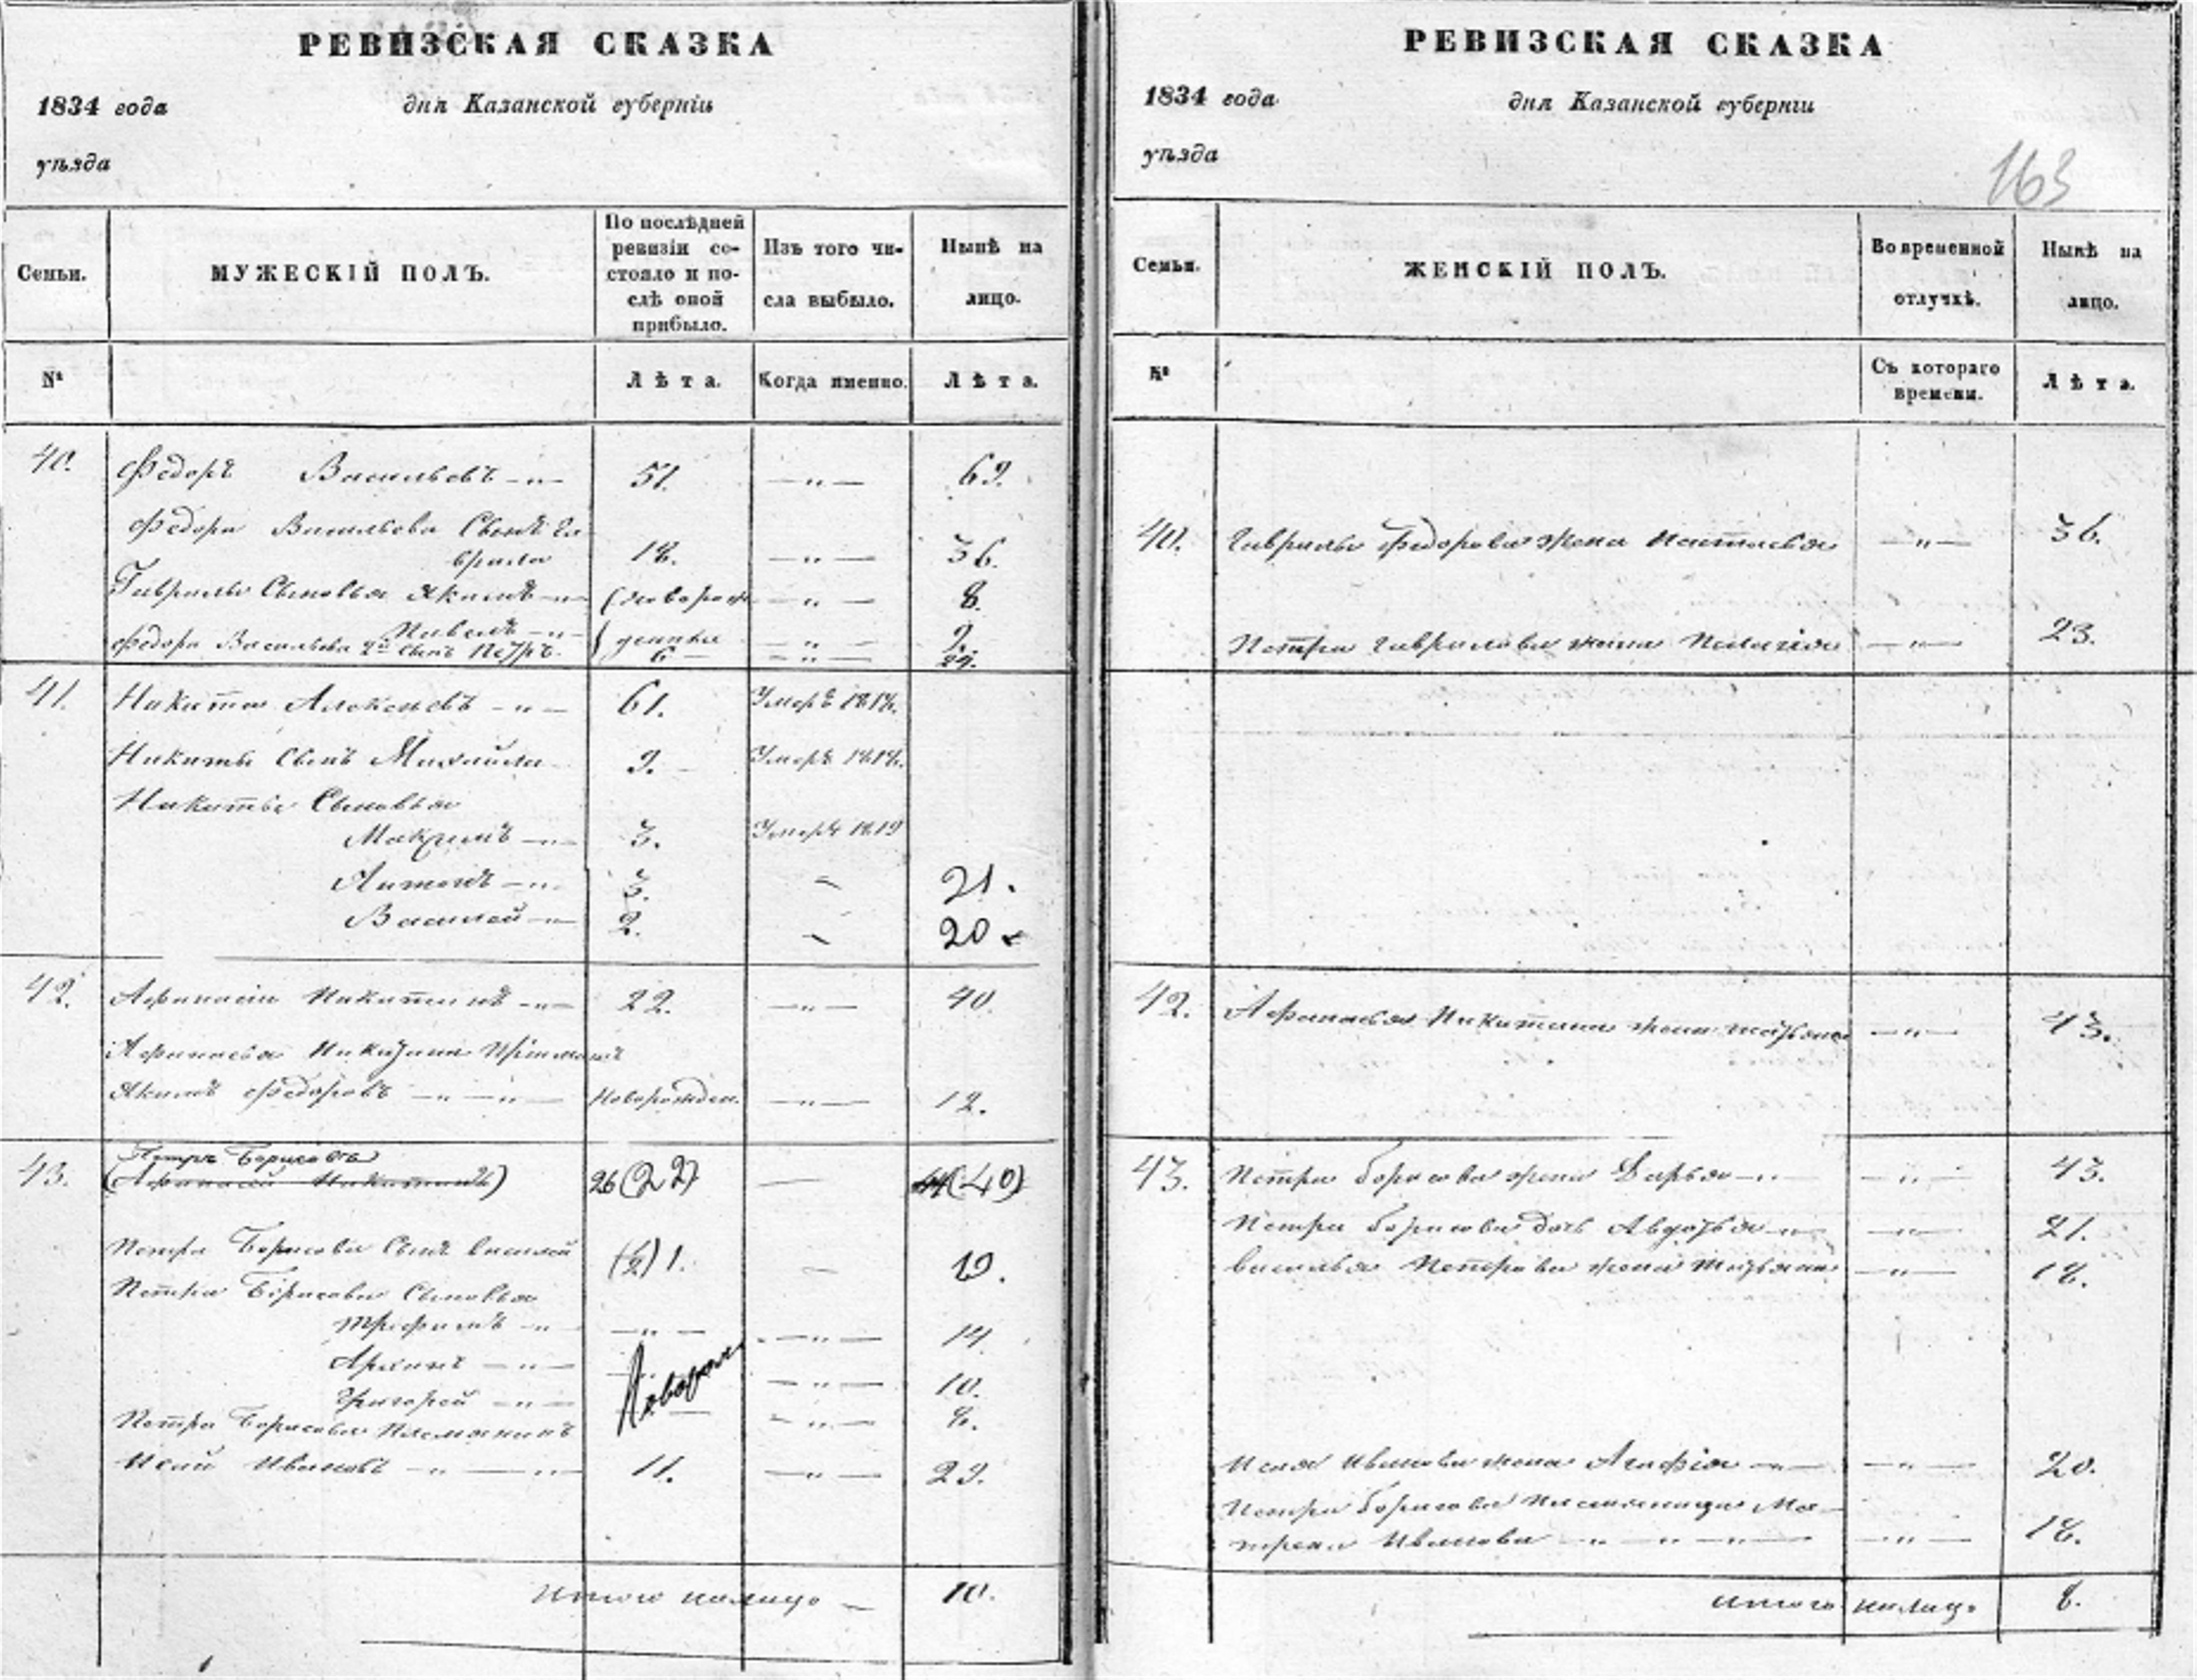 РЕВИЗСКАЯ СКАЗКА
1834 года дня Казанской губерніи
уѣзда
Семьи. МУЖЕСКІЙ ПОЛЪ. По послѣдней ревизіи со- Изъ того чи- Нынѣ на
стояло и по- слѣ оной прибыло. сла выбыло. лицо.
№ Лѣта. Когда именно. Лѣта.
40. Федоръ Васильевъ —„— 51. —„— 69.
Федора Васильева Сынъ Га
врило 18. —„— 36.
Гаврилы Сыновья Якимъ —„— (новорож —„— 8.
Павелъ —„— —„— 2.
Федора Васильева 2й сынъ Петръ. 6 —„— 24.
41. Никита Алексѣевъ —„— 61. Умеръ 1818.
Никиты Сынъ Михайла 9. Умеръ 1818.
Никиты Сыновья
Максимъ —„— 3. Умеръ 1819
Антонъ —„— 3. — 21.
Василей —„— 2. — 20.
42. Афанасiй Никитинъ —„— 22. —„— 40.
Афанасья Никитина
Якимъ Федоровъ —„— —„— Новорожден. —„— 12.
43. Петръ Борисовъ
(Афанасей Никитинъ) 26 (22) — (40)
Петра Борисова Сынъ Василей 1. — 19.
Петра Борисова Сыновья
Трофимъ —„— —„— —„— 14.
Архипъ —„— Новорож —„— 10.
Григорей —„— —„— 8.
Петра Борисова Племянникъ
Исай Ивановъ —„— —„— 11. —„— 29.
Итого налицо — 10.
РЕВИЗСКАЯ СКАЗКА
1834 года дня Казанской губерніи
уѣзда
163
Семьи. ЖЕНСКІЙ ПОЛЪ. Во временной Нынѣ на
отлучкѣ. лицо.
№ Съ котораго времени. Лѣта.
40. Гаврилы Федорова жена Настасья —„— 36.
Петра Гаврилова жена Пелагія —„— 23.
42. Афанасья Никитина жена Татьяна —„— 43.
43. Петра Борисова жена Дарья —„— —„— 43.
Петра Борисова дочь Авдотья —„— —„— 21.
Василья Петрова жена Татьяна —„— 18.
Исая Иванова жена Агафія —„— —„— 20.
Петра Борисова племянница Ма-
трена Иванова —„—„—„— —„— 18.
итого налицо 8.